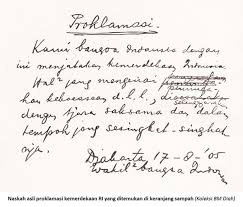 Proklamasi.
Kami bangsa Indonesia dengan
ini menjatakan kemerdekaan Indonesia.
Hal² jang mengenai
kekoeasaan d.l.l.,
dengan tjara saksama dan dalam
tempoh jang sesingkat-singkat
nja.
Djakarta 17-8-'05
Wakil² bangsa Indon
Naskah asli proklamasi kemerdekaan RI yang ditemukan di keranjang sampah (Koleksi BM Diah)